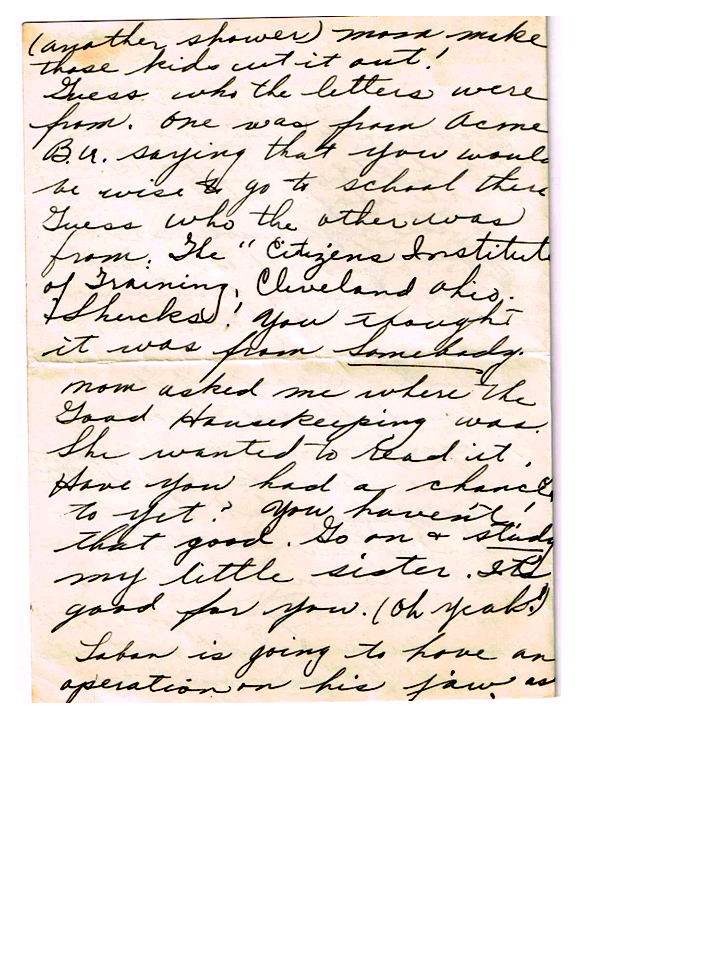 (another shower) mom make
those kids cut it out!
Guess who the letters were
from. One was from Acme
B.U. saying that you would
be wise to go to school there
Guess who the other was
from. The "Citizens Institute
of Training, Cleveland Ohio.
Shucks! You thought
it was from Somebody.
mom asked me where the
Good Housekeeping was.
She wanted to read it.
Have you had a chance
to yet? You haven't!
that good. Go on & study
my little sister. It's
good for you. (Oh Yeah!)
Laban is going to have an
operation on his jaw as